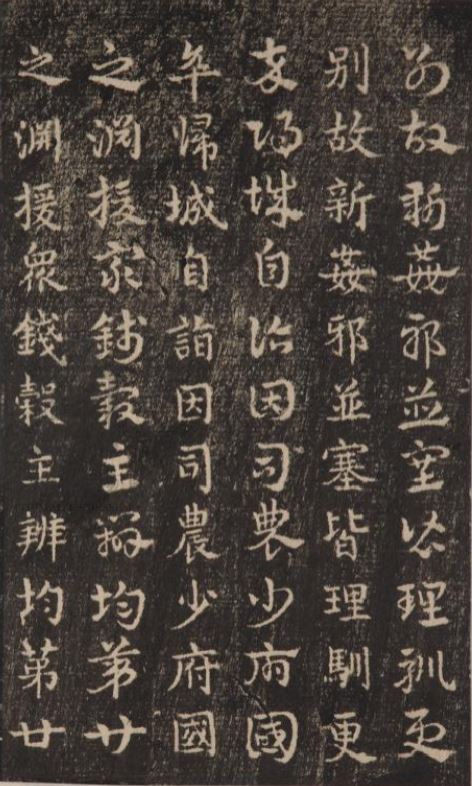 別故新姦邪並塞皆理馴更
別故新姦邪並塞皆理馴更
卒歸城自詣因司農少府國
卒歸城自詣因司農少府國
之淵援眾錢穀主辨均第廿
之淵援眾錢穀主辨均第廿